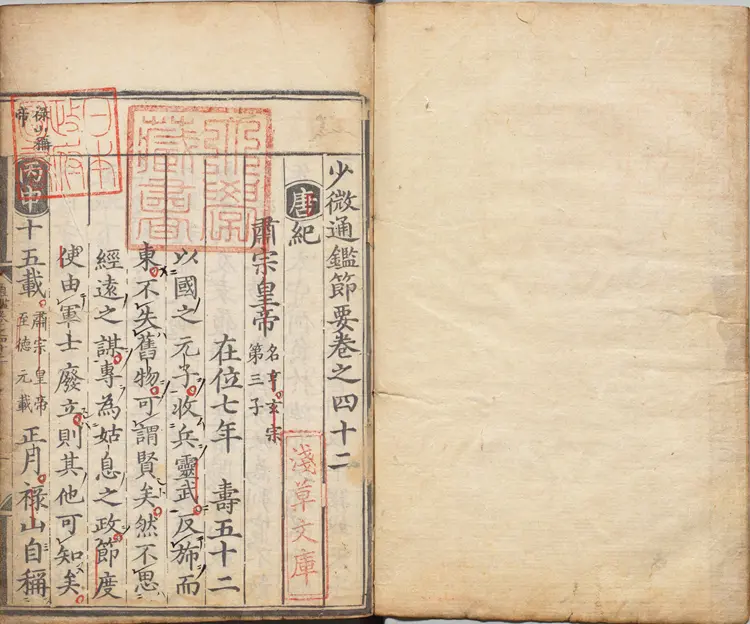 少微通鑑節要卷之四十二
唐紀
肅宗皇帝
名亨玄宗
第三子
在位七年 壽五十二
以國之元子收兵靈武反斾而
東不失舊物可謂賢矣然不思
經遠之謀專為姑息之政節度
使由軍士廢立則其他可知矣
祿山稱
帝
丙申
十五載
肅宗皇帝
至德元載
正月祿山自稱
淺草文庫
日本
政府